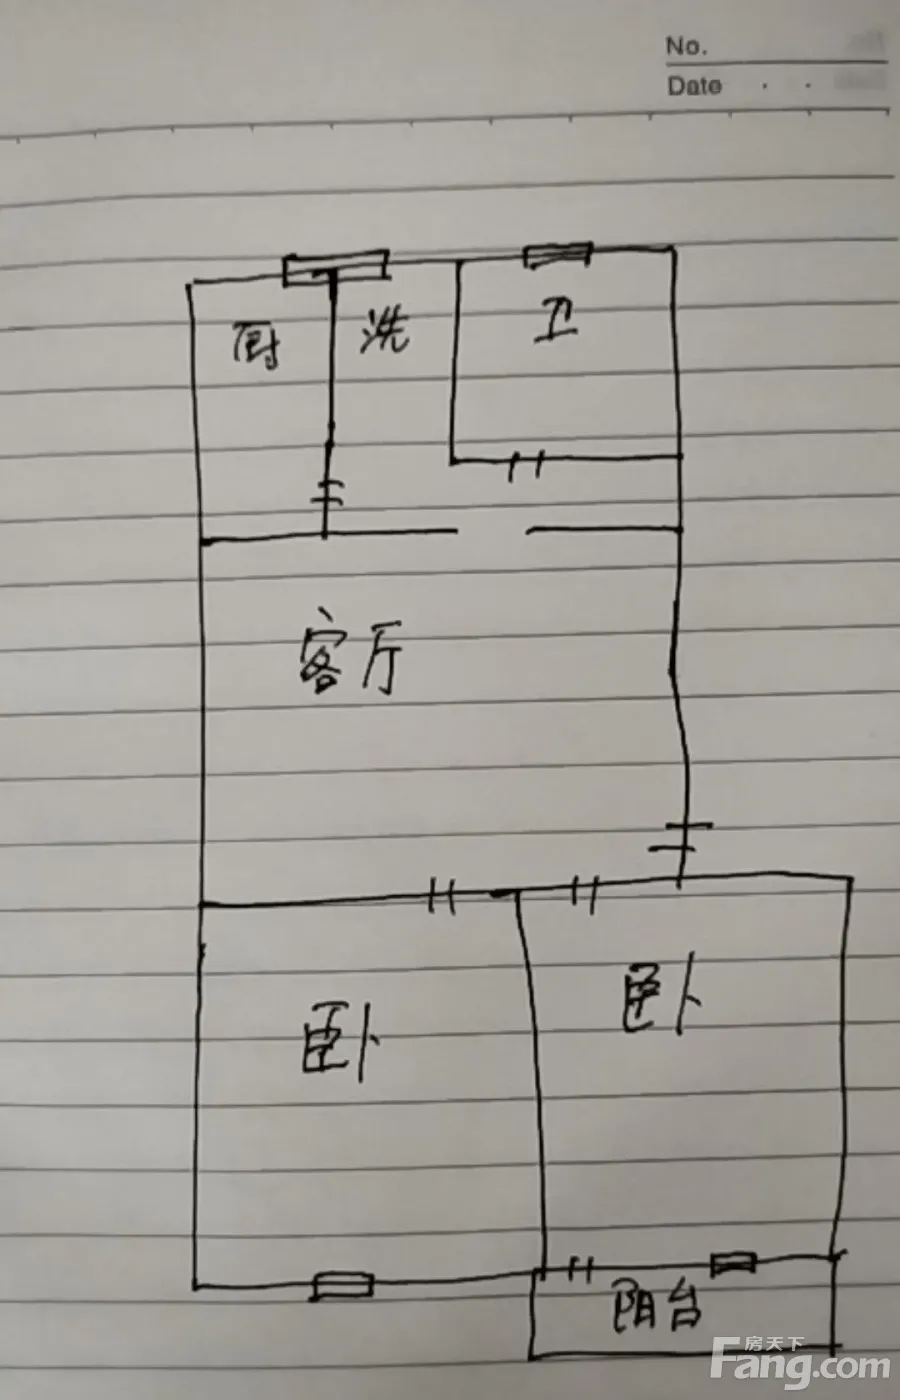 No.
Date
厨
洗
卫
客厅
卧
卧
阳台
房天下
Fang.com